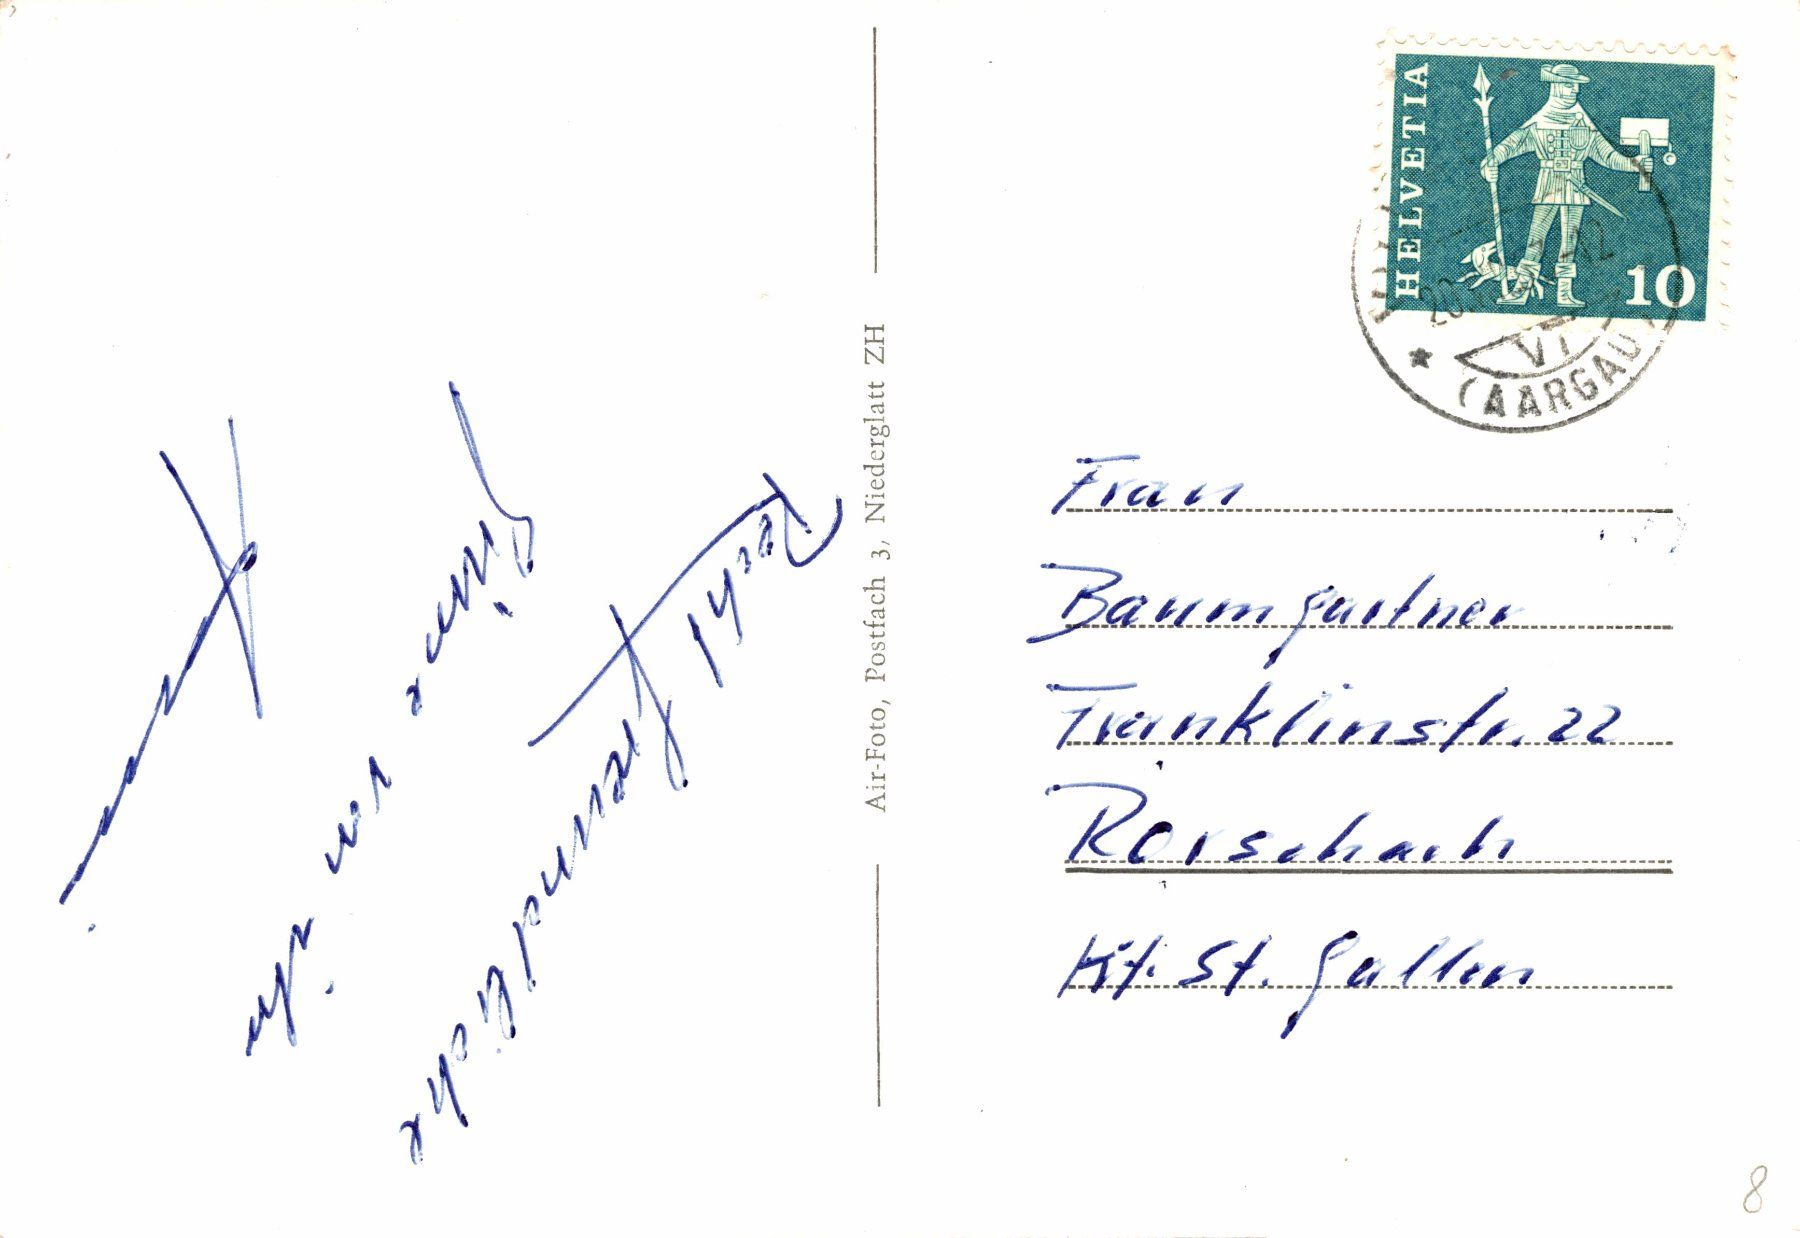 HELVETIA
10
20
-12
VI
(AARGAU)
Recht freundliche
Grüsse von
Air-Foto, Postfach 3, Niederglatt ZH
Frau
Baumgartner
Franklinstr. 22
Rorschach
Kt. St. Gallen
8